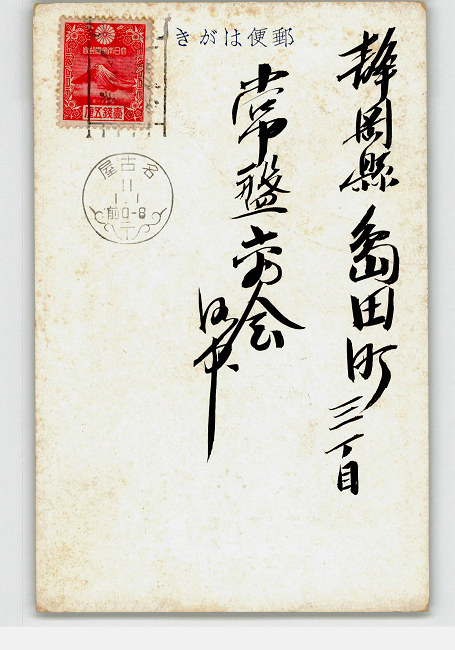 郵便はがき
静岡縣島田町三丁目
常盤商会
御中
名古屋
11
1.1
前0-8
壹錢五厘